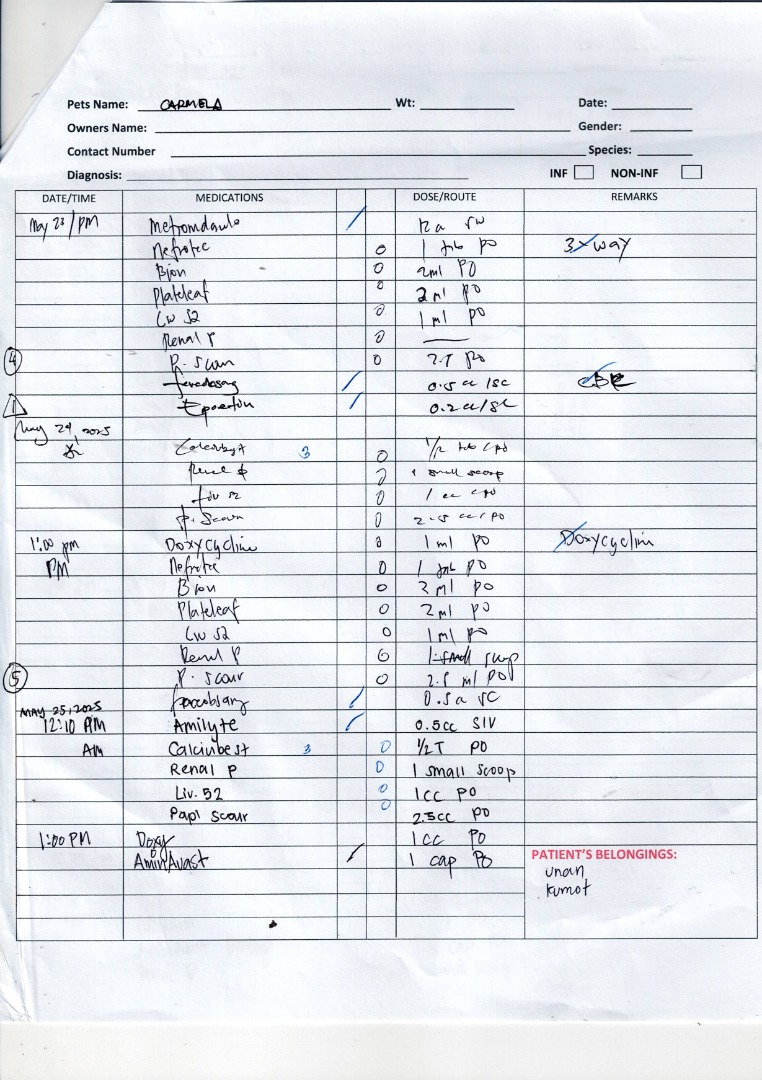 Pets Name: CARMELA Wt: Date:
Owners Name: Gender:
Contact Number Species:
Diagnosis: INF NON-INF
DATE/TIME MEDICATIONS DOSE/ROUTE REMARKS
May 23/PM
Nefrotec 0 1 tab PO 3 way
Bion 0 2ml PO
Plateleaf 0 2ml PO
Liv 52 0 1ml PO
Renal P 0
4 P. Scour 0 PO
0.5 cc/SC CBC
1 0.2cc/SC
May 24, 2025
3 0 1/2 tab/PO
0 1 small scoop
Liv 52 0 1 cc/PO
P. Scour 0 2.5 cc/PO
1:00 pm Doxycycline 0 1 ml PO Doxycyclin
PM Nefrotec 0 1 tab PO
Bion 0 2ml PO
Plateleaf 0 2ml PO
Liv 52 0 1ml PO
Renal P 0 1 small scoop
5 P. Scour 0 2.5 ml PO
0.5 SC
MAY 25, 2025
12:10 AM Amilyte 0.5cc SIV
AM Calciubest 3 0 1/2 T PO
Renal P 0 1 small scoop
Liv. 52 0 1cc PO
Papi Scour 0 2.5cc PO
1:00 PM Doxy 1cc PO
AminAvast 1 cap PO
PATIENT'S BELONGINGS:
unan
kumot